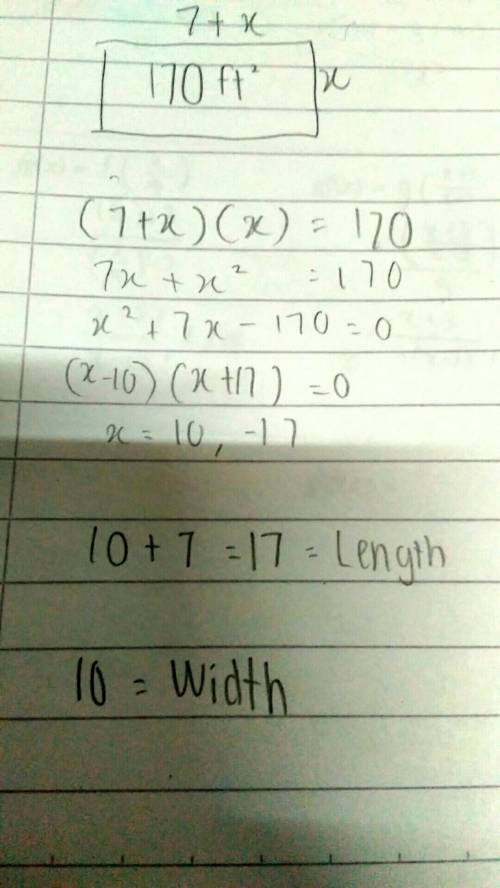 7+x
170 ft² x
(7+x)(x) = 170
7x + x² = 170
x² + 7x - 170 = 0
(x-10) (x+17) = 0
x = 10, -17
10 + 7 = 17 = Length
10 = Width